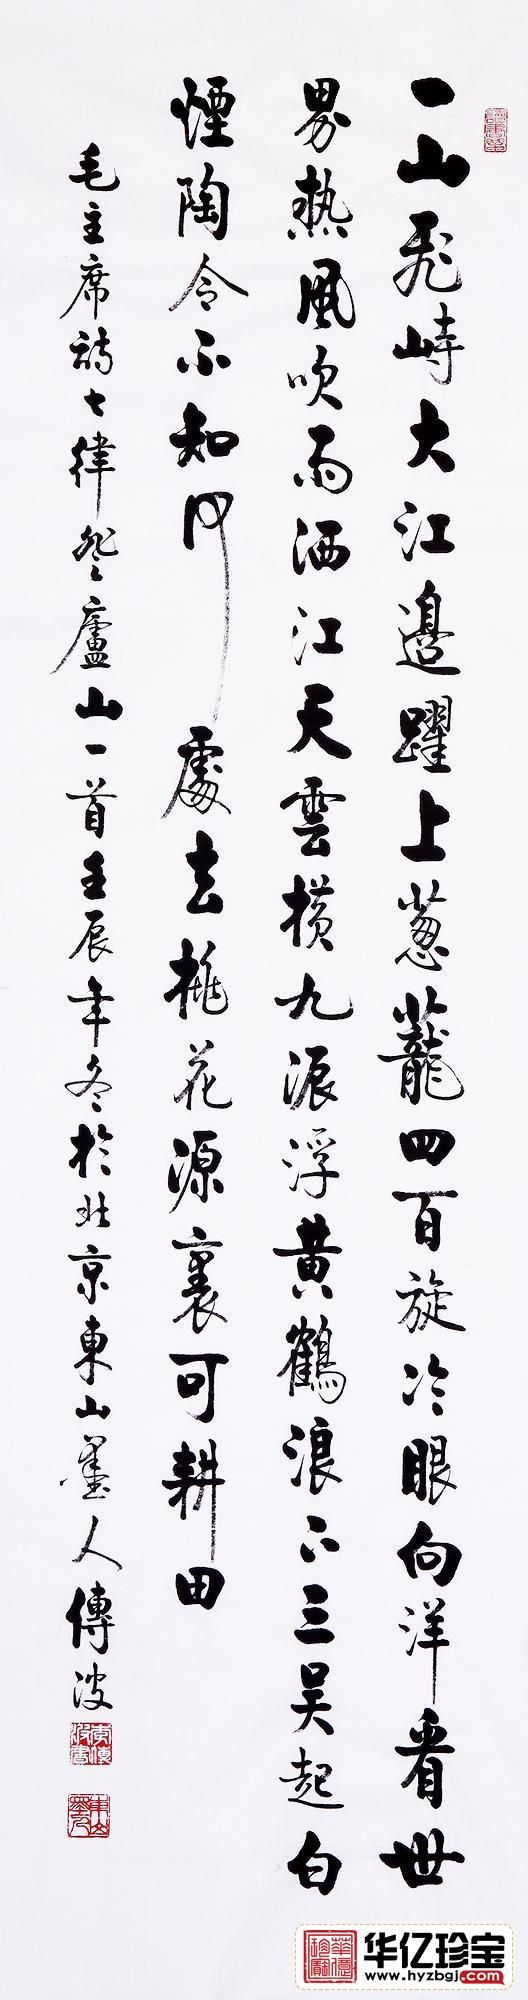 一山飛峙大江邊躍上葱蘢四百旋冷眼向洋看世
界熱風吹雨洒江天雲橫九派浮黄鶴浪下三吴起白
煙陶令不知何處去桃花源裏可耕田
毛主席詩七律登廬山一首壬辰年冬於北京東山墨人傳波
东山墨人
华亿珍宝
www.hyzbgj.com